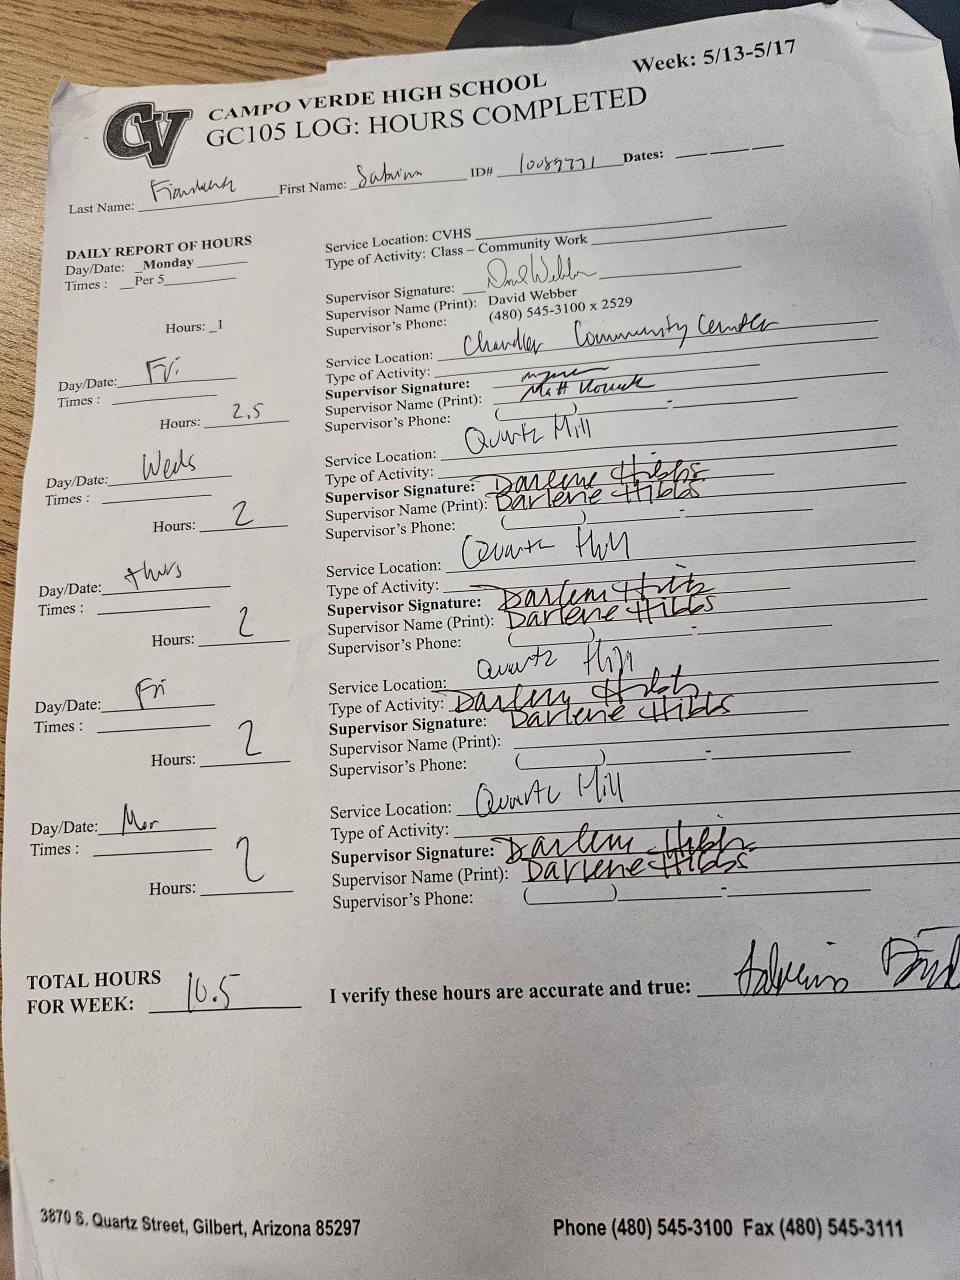 Week: 5/13-5/17
CV
CAMPO VERDE HIGH SCHOOL
GC105 LOG: HOURS COMPLETED
Last Name: First Name: Sabrina ID# 10089771 Dates:
DAILY REPORT OF HOURS
Day/Date: Monday
Times : Per 5
Hours: 1
Service Location: CVHS
Type of Activity: Class – Community Work
Supervisor Signature: David Webber
Supervisor Name (Print): David Webber
Supervisor's Phone: (480) 545-3100 x 2529
Day/Date: Fri
Times :
Hours: 2.5
Service Location: Chandler Community Center
Type of Activity:
Supervisor Signature:
Supervisor Name (Print): Matt
Supervisor's Phone: ( ) -
Day/Date: Weds
Times :
Hours: 2
Service Location: Quartz Hill
Type of Activity:
Supervisor Signature: Darlene Hibbs
Supervisor Name (Print): Darlene Hibbs
Supervisor's Phone: ( ) -
Day/Date: thurs
Times :
Hours: 2
Service Location: Quartz Hill
Type of Activity:
Supervisor Signature: Darlene Hibbs
Supervisor Name (Print): Darlene Hibbs
Supervisor's Phone: ( ) -
Day/Date: Fri
Times :
Hours: 2
Service Location: Quartz Hill
Type of Activity: Darlene Hibbs
Supervisor Signature: Darlene Hibbs
Supervisor Name (Print):
Supervisor's Phone: ( ) -
Day/Date: Mon
Times :
Hours: 2
Service Location: Quartz Hill
Type of Activity:
Supervisor Signature: Darlene Hibbs
Supervisor Name (Print): Darlene Hibbs
Supervisor's Phone: ( ) -
TOTAL HOURS
FOR WEEK: 10.5
I verify these hours are accurate and true:
3870 S. Quartz Street, Gilbert, Arizona 85297
Phone (480) 545-3100 Fax (480) 545-3111